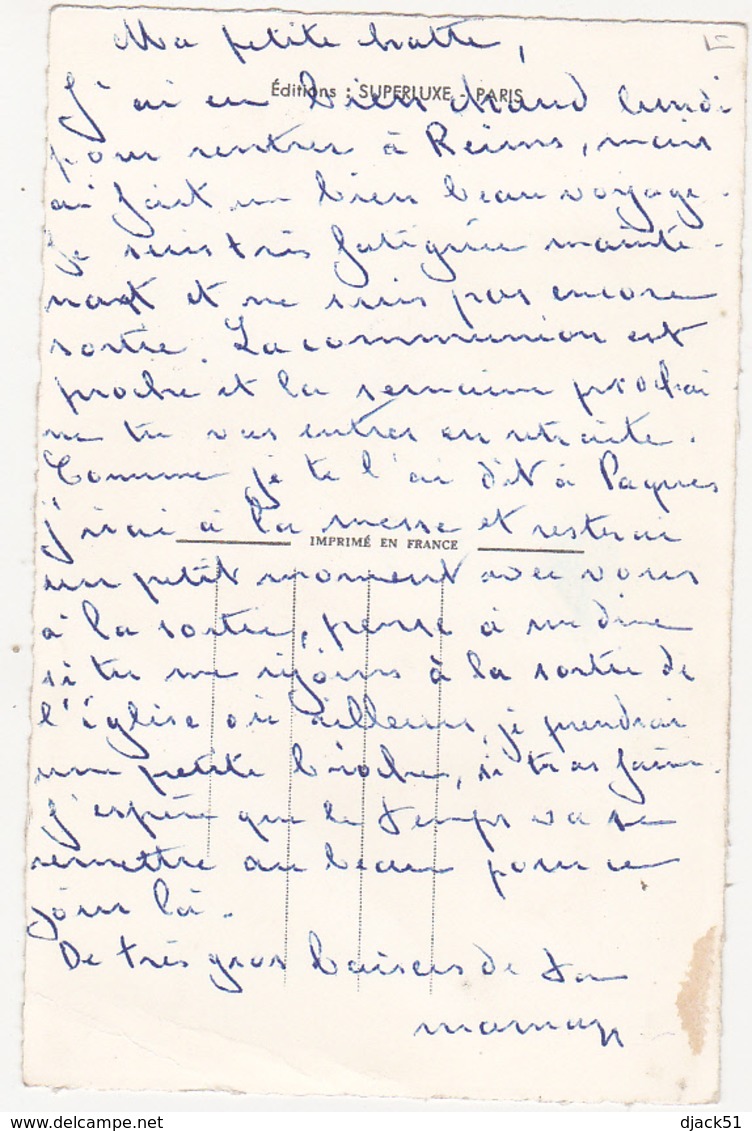 Ma petite
Éditions : SUPERLUXE - PARIS
J'ai eu bien chaud lundi
pour rentrer à Reims, mais
ai fait un bien beau voyage.
Je suis très fatiguée mainte-
nant et ne suis pas encore
sortie. La communion est
proche et la semaine prochai
ne tu vas entrer en retraite.
Comme je te l'ai dit à Paques
j'irai à la messe et resterai
IMPRIMÉ EN FRANCE
un petit moment avec vous
à la sortie, pense à me dire
si tu me rejoins à la sortie de
l'Église où ailleurs, je prendrai
une petite brioche, si tu as faim.
J'espère que le temps va se
remettre au beau pour ce
jour là.
De très gros baisers de ta
djack51